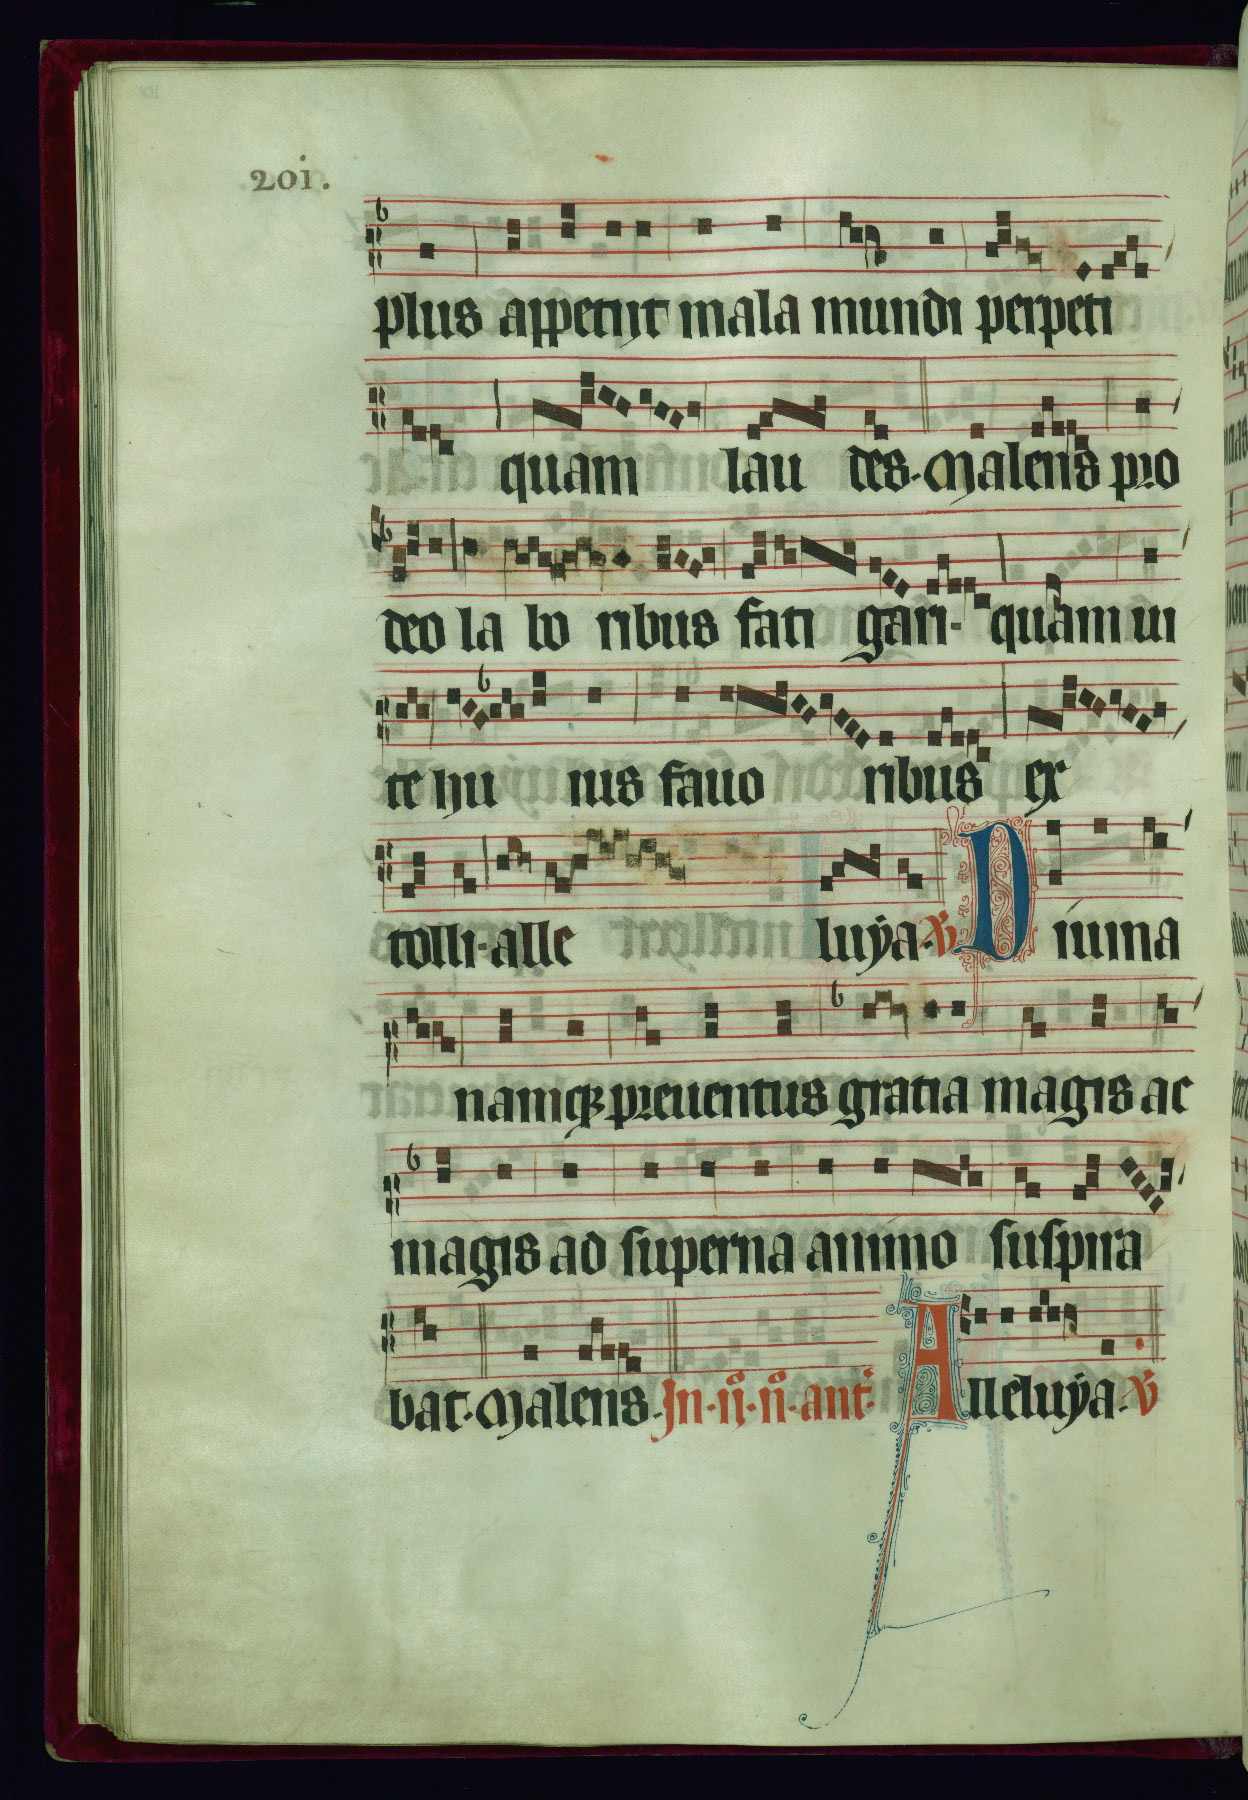 201.
plus appetijt mala mundi perpeti
quam lau des. Malens pro
deo la bo ribus fati gari. quam ui
te hu ius fauo ribus ex
tolli. alle luÿa. ℣ D iuina
namq; preuentus gratia magis ac
magis ad superna animo suspira
bat. Malens. In. ij̊. n̊. ant̄. Alleluÿa. ℣